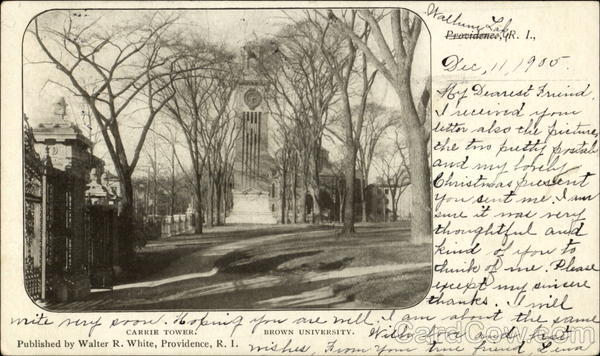 Wallum Lake
Providence, R. I.,
Dec, 11, 1905.
My Dearest Friend.
I received your
letter also the picture,
the two pretty postals
and my lovely
Christmas present
you sent me. I am
sure it was very
thoughtful and
kind of you to
think of me. Please
except my sincere
thanks. I will
write very soon. Hoping you are well. I am about the same
With love and best
wishes, From your true friend Lena
CARRIE TOWER. BROWN UNIVERSITY.
Published by Walter R. White, Providence, R. I.
CardCow.com